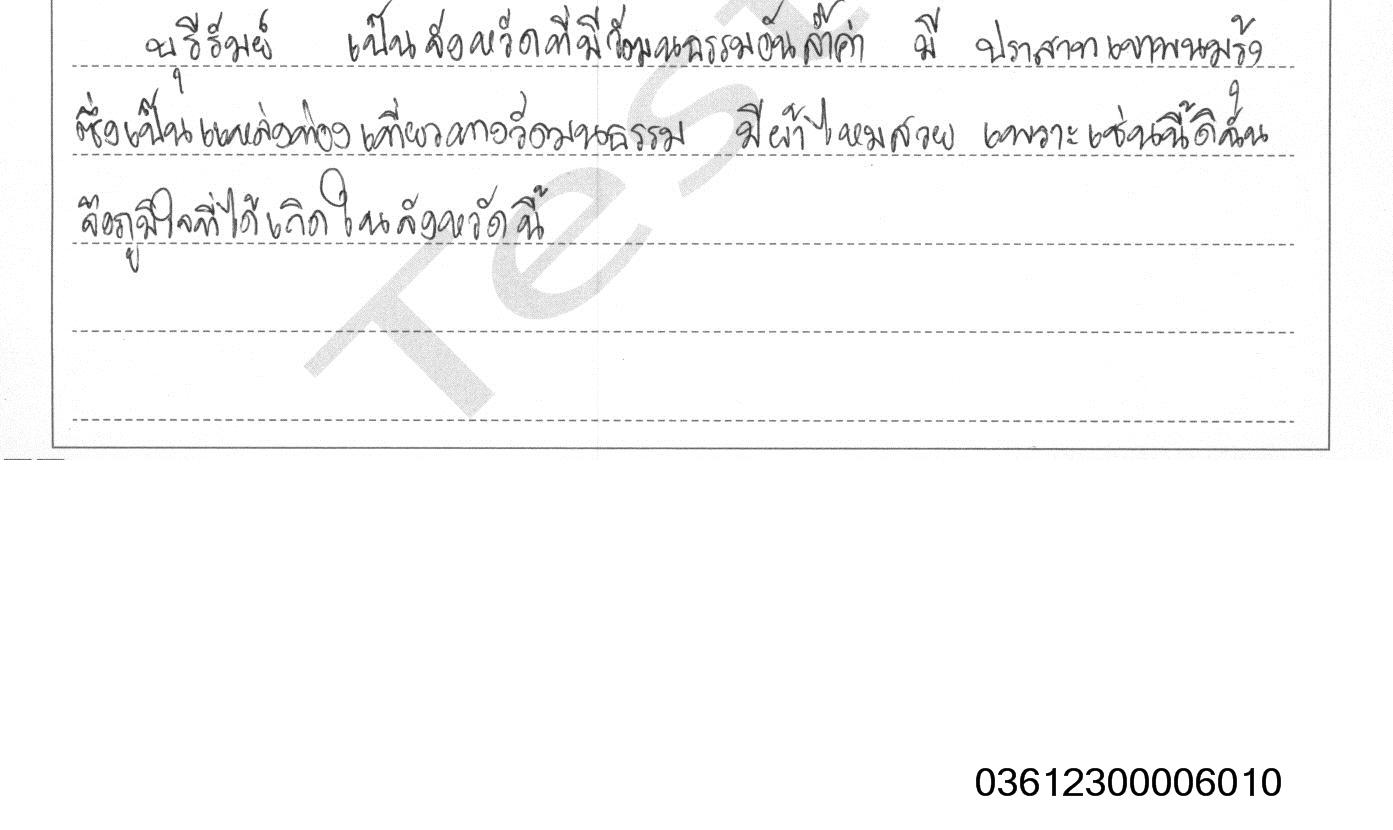 บุรีรัมย์ เป็นจังหวัดที่มีวัฒนธรรมอันล้ำค่า มี ปราสาทเขาพนมรุ้ง
ซึ่งเป็นแหล่งท่องเที่ยวทางวัฒนธรรม มีผ้าไหมสวย เพราะเช่นนี้ดิฉัน
จึงภูมิใจที่ได้เกิดในจังหวัดนี้
Test
03612300006010